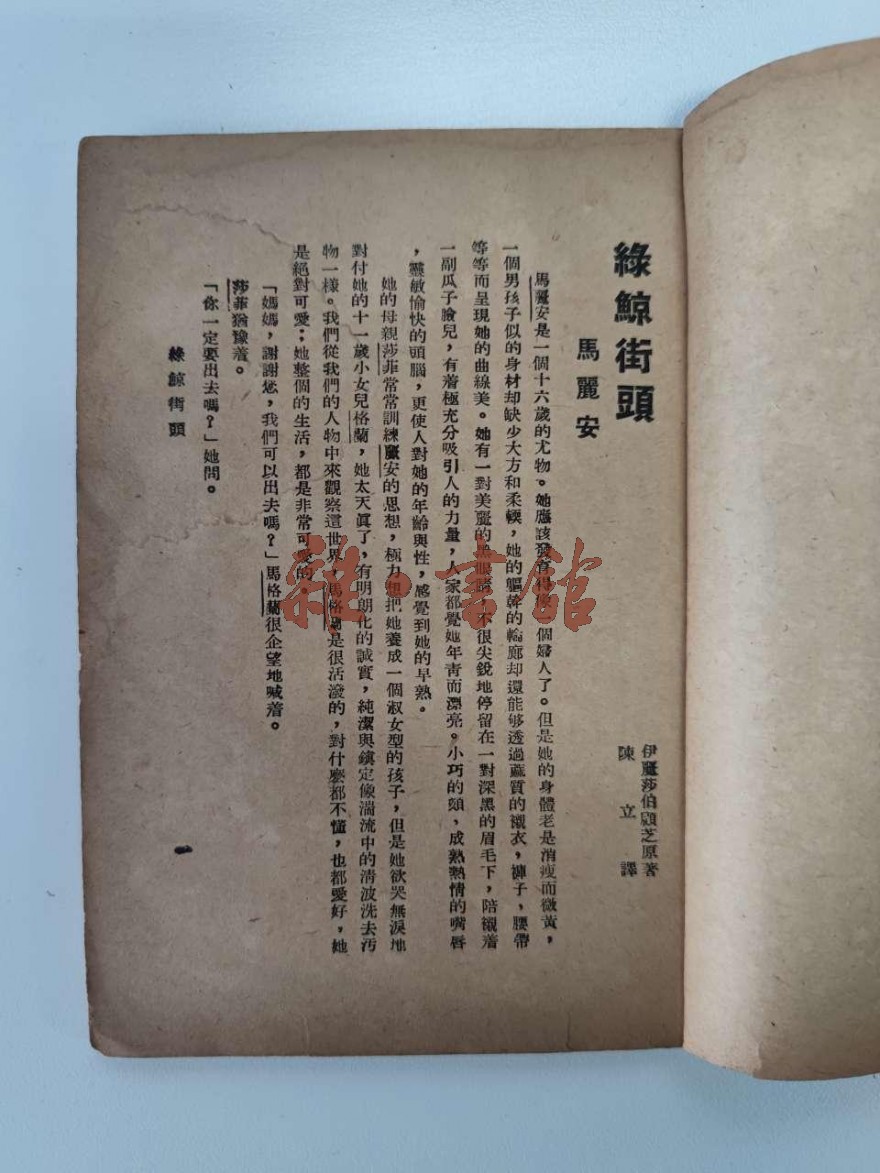 綠鯨街頭
馬麗安
伊麗莎伯顧芝原著
陳立譯
馬麗安是一個十六歲的尤物。她應該發育得像個婦人了。但是她的身體老是消瘦而微黃，
一個男孩子似的身材却缺少大方和柔輭，她的軀幹的輪廓却還能够透過蔴質的襯衣，褲子，腰帶
等等而呈現她的曲線美。她有一對美麗的黑眼睛，不很尖銳地停留在一對深黑的眉毛下，陪襯着
一副瓜子臉兒，有着極充分吸引人的力量，人家都覺她年靑而漂亮。小巧的頰，成熟熱情的嘴唇
，靈敏愉快的頭腦，更使人對她的年齡與性，感覺到她的早熟。
她的母親莎菲常常訓練麗安的思想，極力想把她養成一個淑女型的孩子，但是她欲哭無淚地
對付她的十一歲小女兒格蘭，她太天眞了，有明朗化的誠實，純潔與鎮定像湍流中的淸波洗去汚
物一樣。我們從我們的人物中來觀察這世界，馬格蘭是很活潑的，對什麽都不懂，也都愛好，她
是絕對可愛；她整個的生活，都是非常可愛的。
「媽媽，謝謝您，我們可以出去嗎？」馬格蘭很企望地喊着。
莎菲猶豫着。
「你一定要出去嗎？」她問。
綠鯨街頭
一
雜·書館